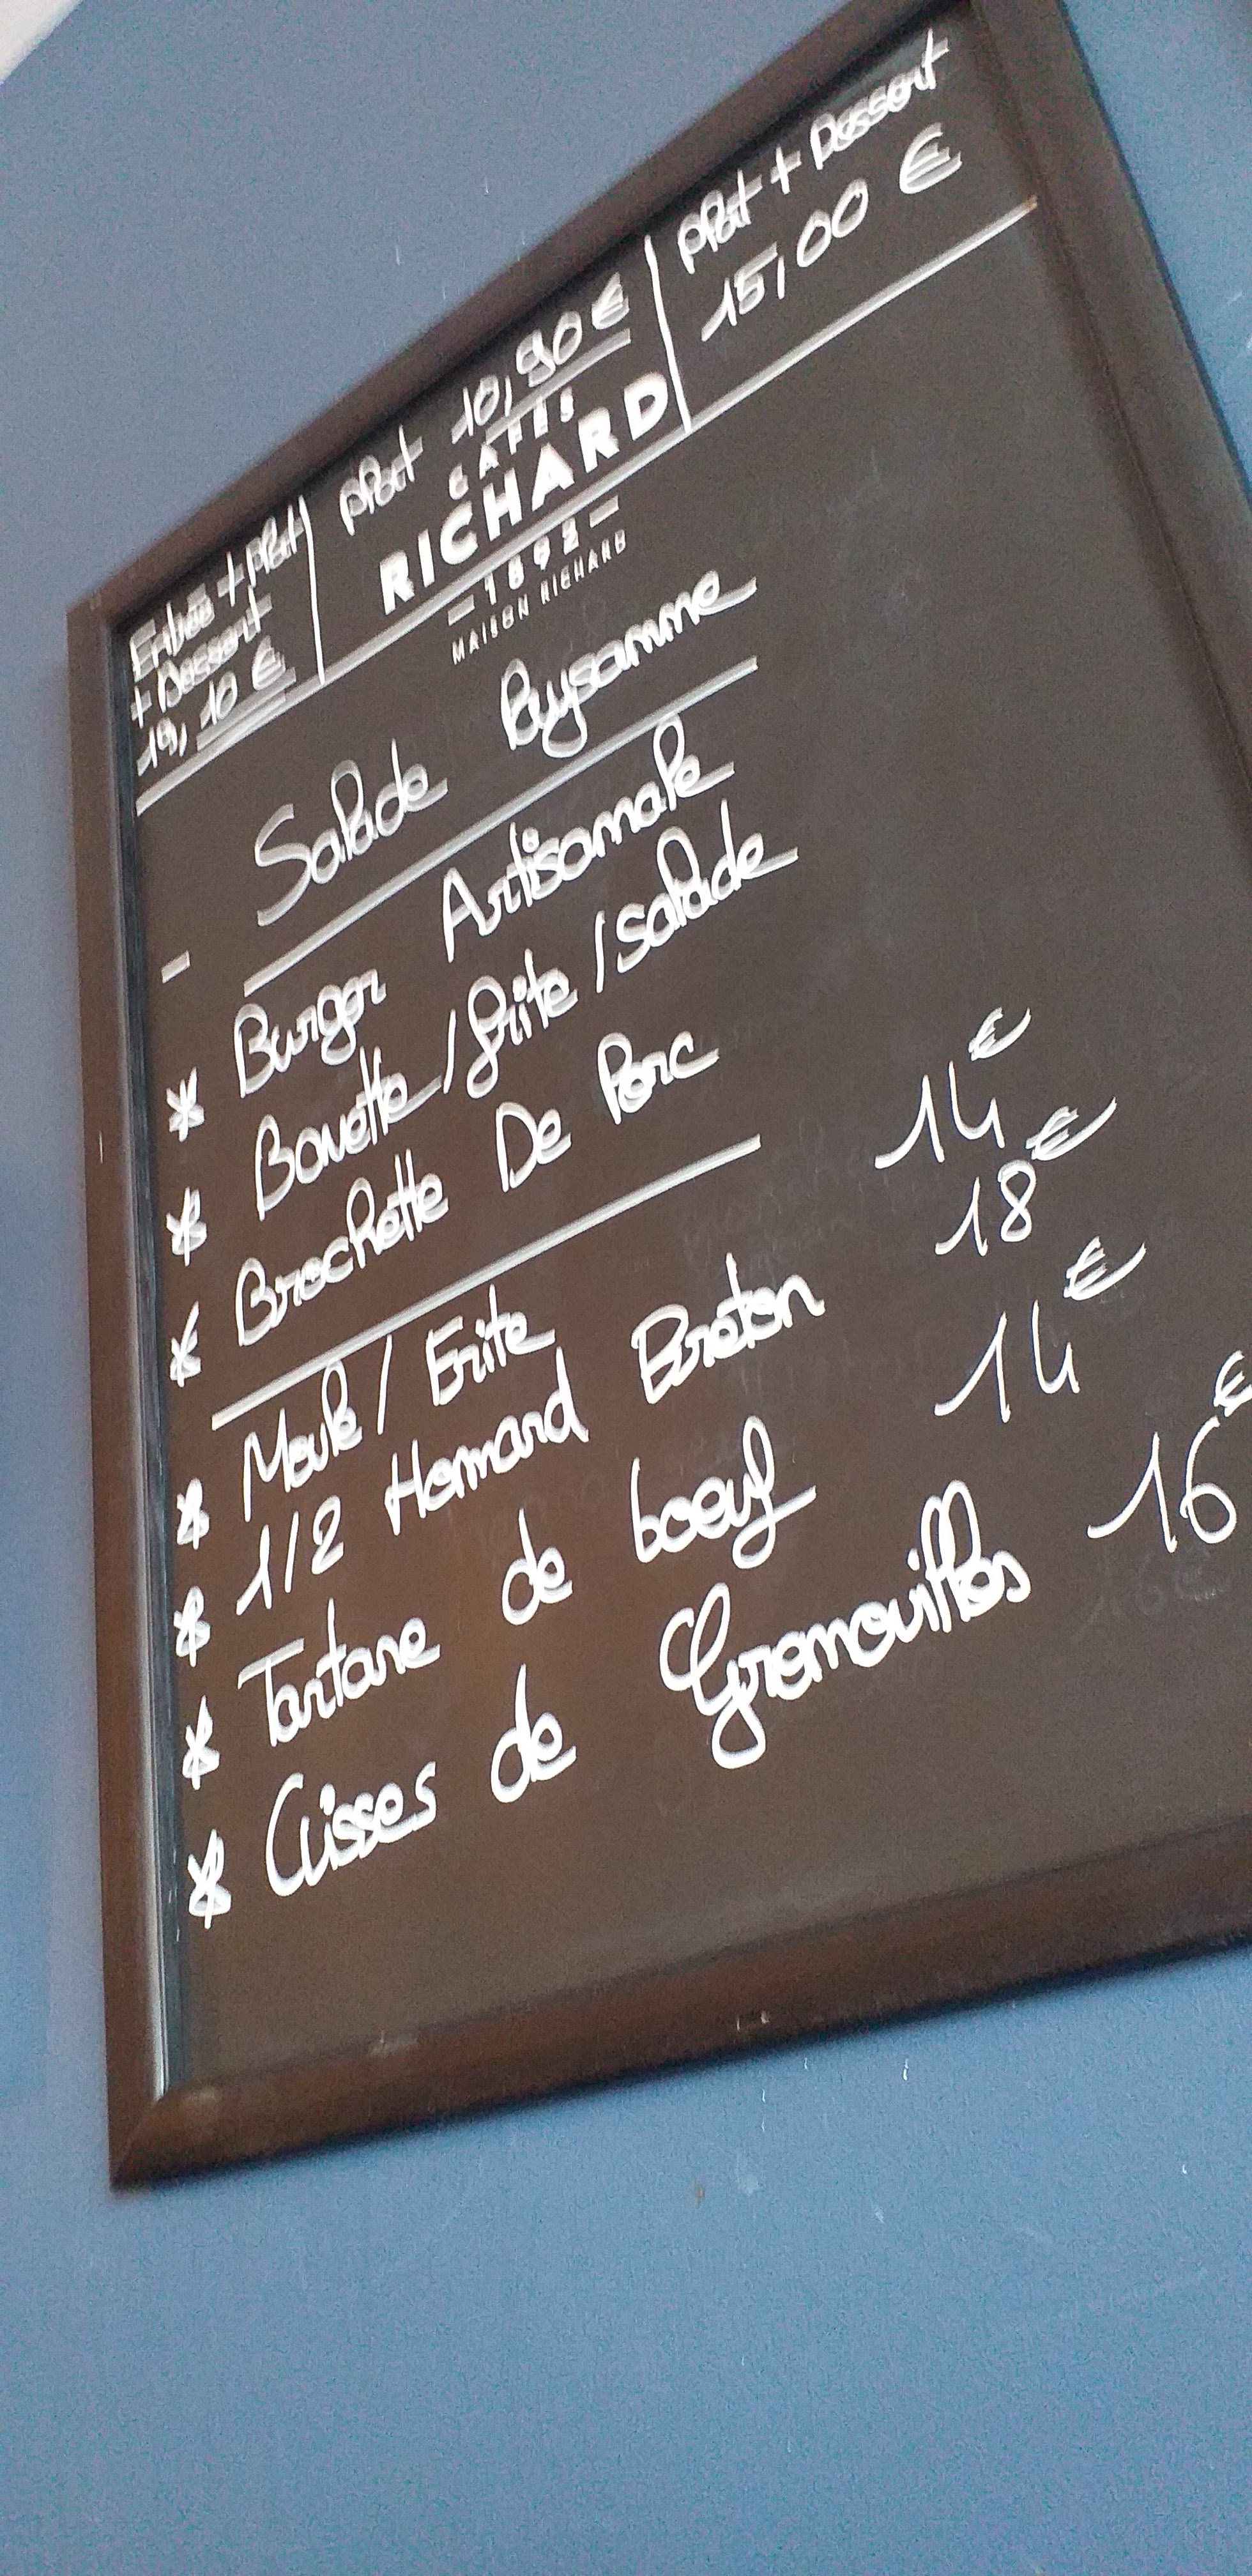 Entrée + Plat
+ Dessert
19,10 €
plat 10,90 €
plat + Dessert
15,00 €
CAFÉS
RICHARD
- 1892 -
MAISON RICHARD
- Salade Paysanne
* Burger Artisanale
* Bavette / frite / salade
* Brochette De Porc
* Moule / Frite 14€
* 1/2 Homard Breton 18€
* Tartare de boeuf 14€
* Cuisses de Grenouilles 16€